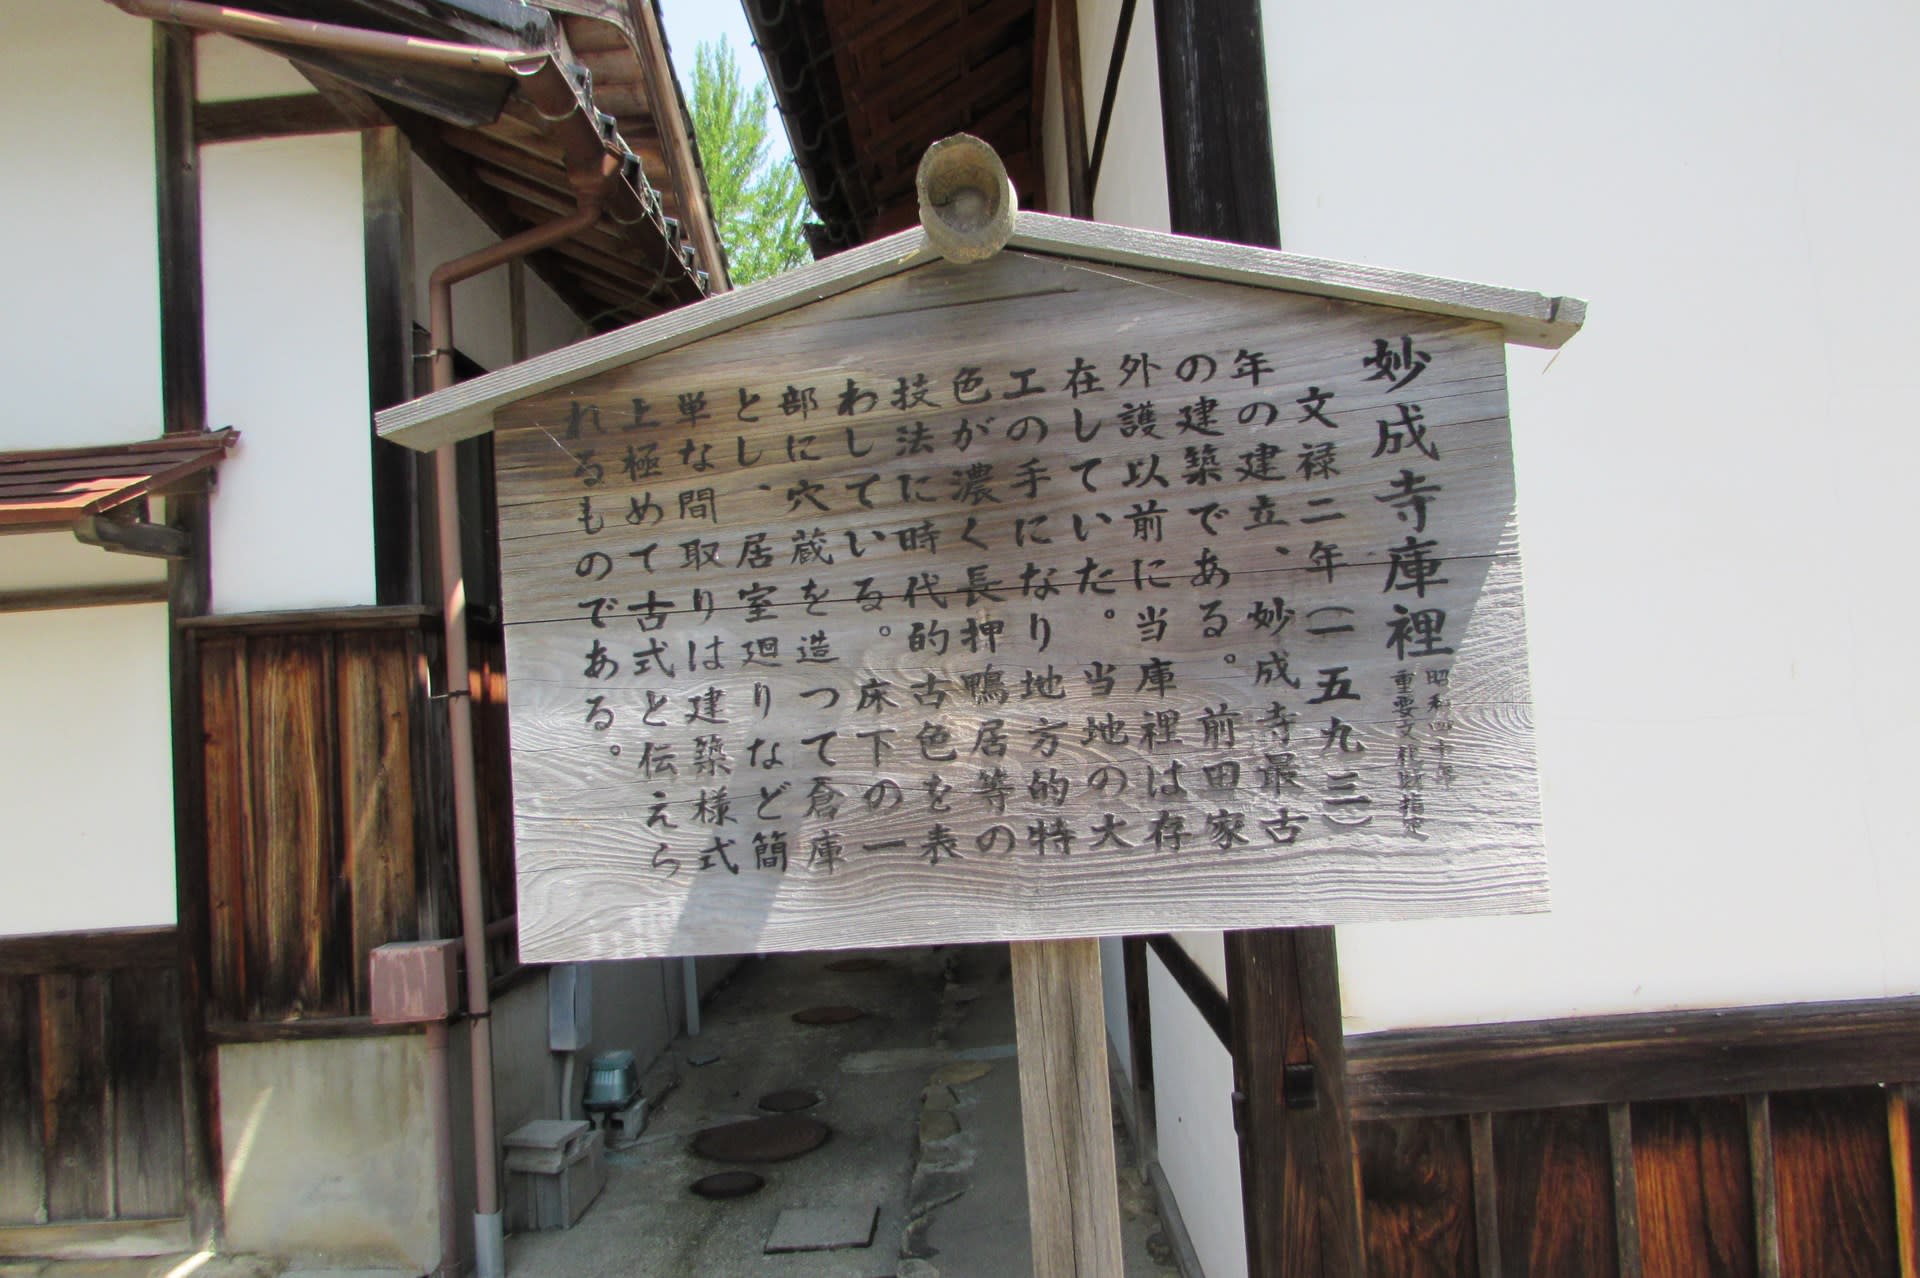 妙成寺庫裡
昭和四十年
重要文化財指定
文禄二年(一五九三)
年の建立、妙成寺最古
の建築である。前田家
外護以前に当庫裡は存
在していた。当地の大
工の手になり地方的特
色が濃く長押鴨居等の
技法に時代的古色を表
わしている。床下の一
部に穴蔵を造つて倉庫
とし、居室廻りなど簡
単な間取りは建築様式
上極めて古式と伝えら
れるものである。